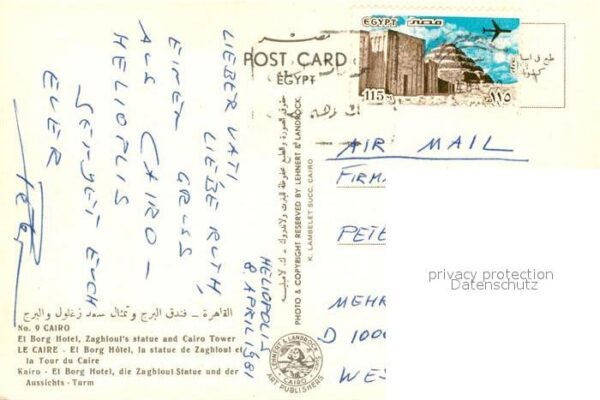 EGYPT مصر
115 M ١١٥
مصر
POST CARD
EGYPT
AIR MAIL
FIRMA
PETE
MEHR
D 1000
WES
privacy protection
Datenschutz
HELIOPOLIS
8. APRIL 1981
LIEBER VATI,
LIEBE RUTH,
EINEN GRUSS
AUS CAIRO -
HELIOPLIS
SENDET EUCH
EUER
PHOTO & COPYRIGHT RESERVED BY LEHNERT & LANDROCK
K. LAMBELET SUCC. CAIRO
القاهرة – فندق البرج وتمثال سعد زغلول والبرج
No. 9 CAIRO
El Borg Hotel, Zaghloul's statue and Cairo Tower
LE CAIRE - El Borg Hôtel, la statue de Zaghloul et
la Tour du Caire
Kairo - El Borg Hotel, die Zaghloul-Statue und der
Aussichts - Turm
LEHNERT & LANDROCK
CAIRO
ART PUBLISHERS